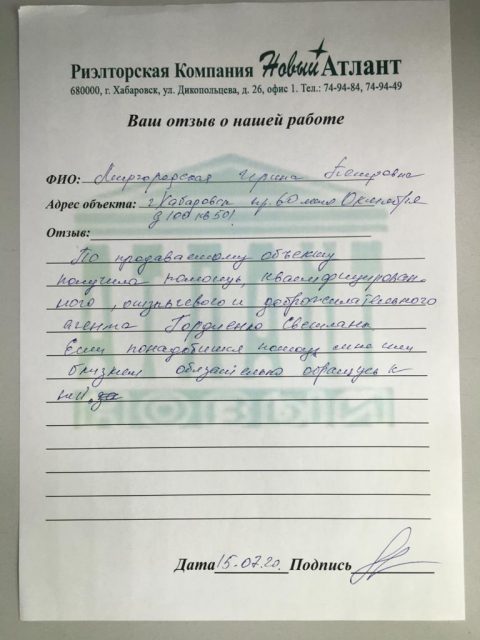 Риэлторская Компания Новый Атлант
680000, г. Хабаровск, ул. Дикопольцева, д. 26, офис 1. Тел.: 74-94-84, 74-94-49
Ваш отзыв о нашей работе
ФИО: Миргородская Ирина Петровна
Адрес объекта: г. Хабаровск пр. 60 летия Октября
д 100 кв 501
Отзыв:
По продаваемому объекту
получила помощь, квалифицирован
ного, отзывчевого и доброжелательного
агента Гордиенко Светлана
Если понадобится помощь мне или
близким обязательно обращусь к
ней.
Дата 15.07.20. Подпись